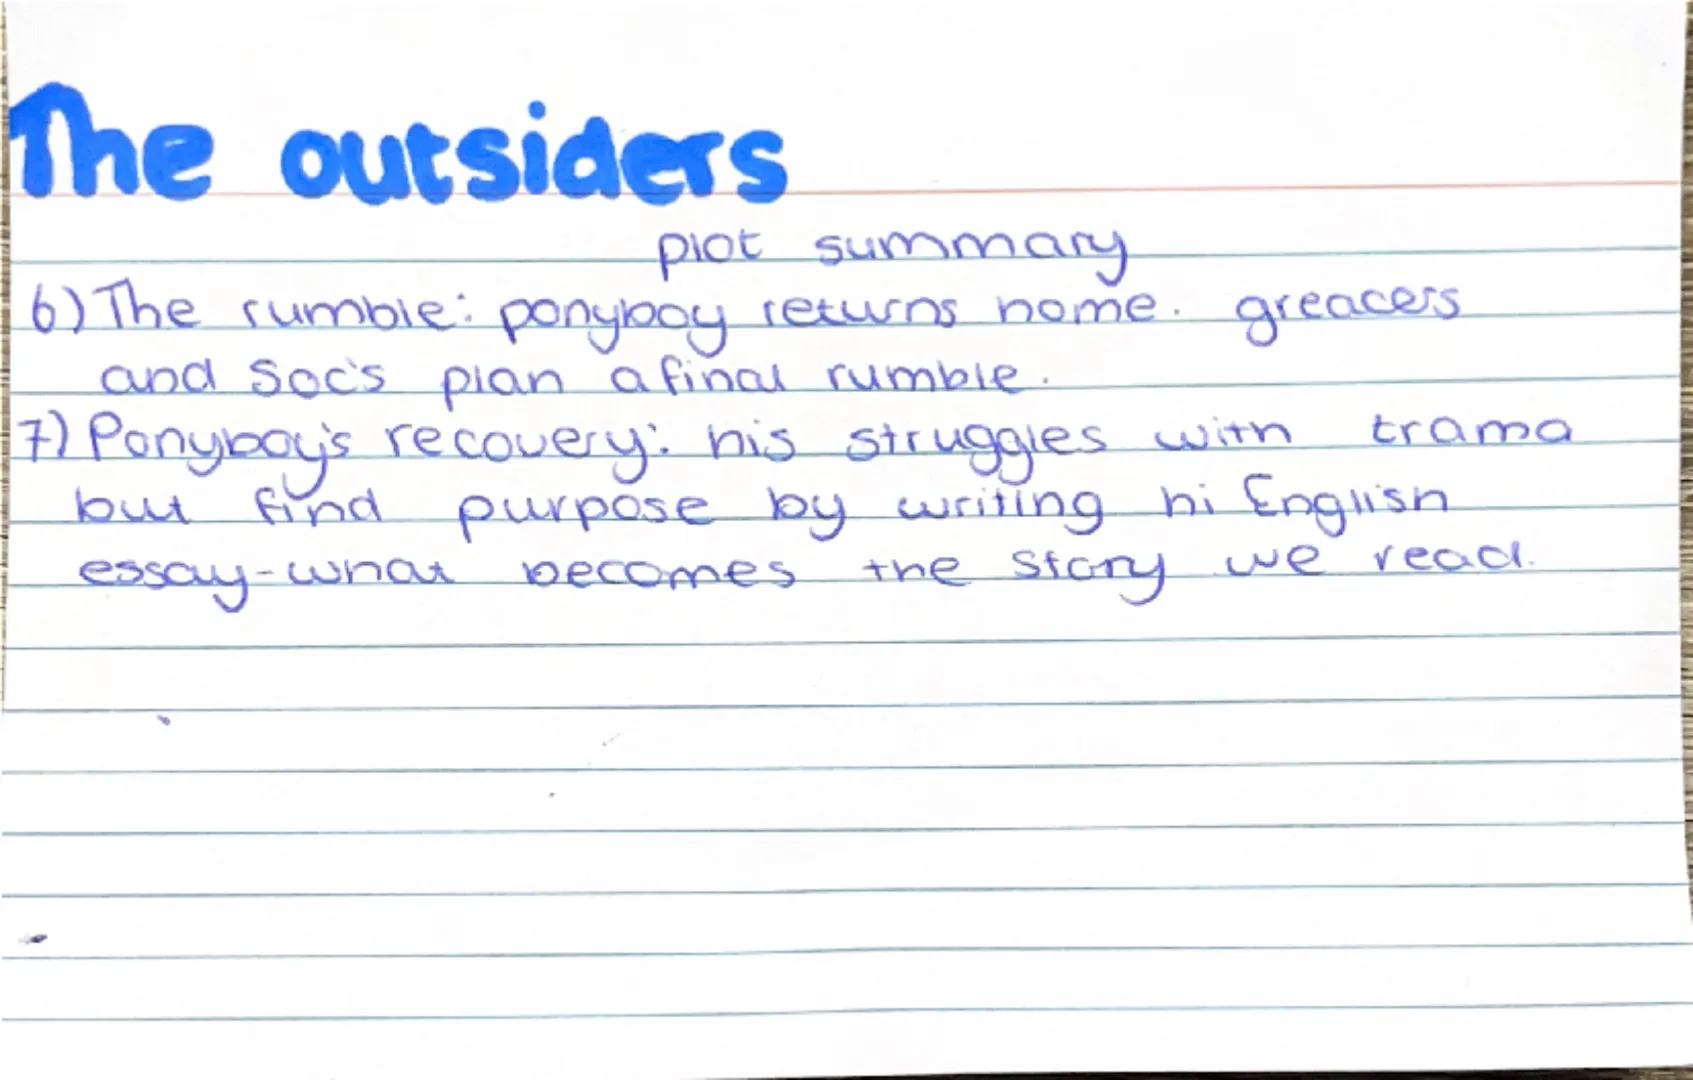 The outsiders
plot summary
6) The rumble: ponyboy returns home. greacers
and Soc's plan a final rumble.
7) Ponyboy's recovery: his struggles with trama
but find purpose by writing hi English
essay-what becomes the story we read.